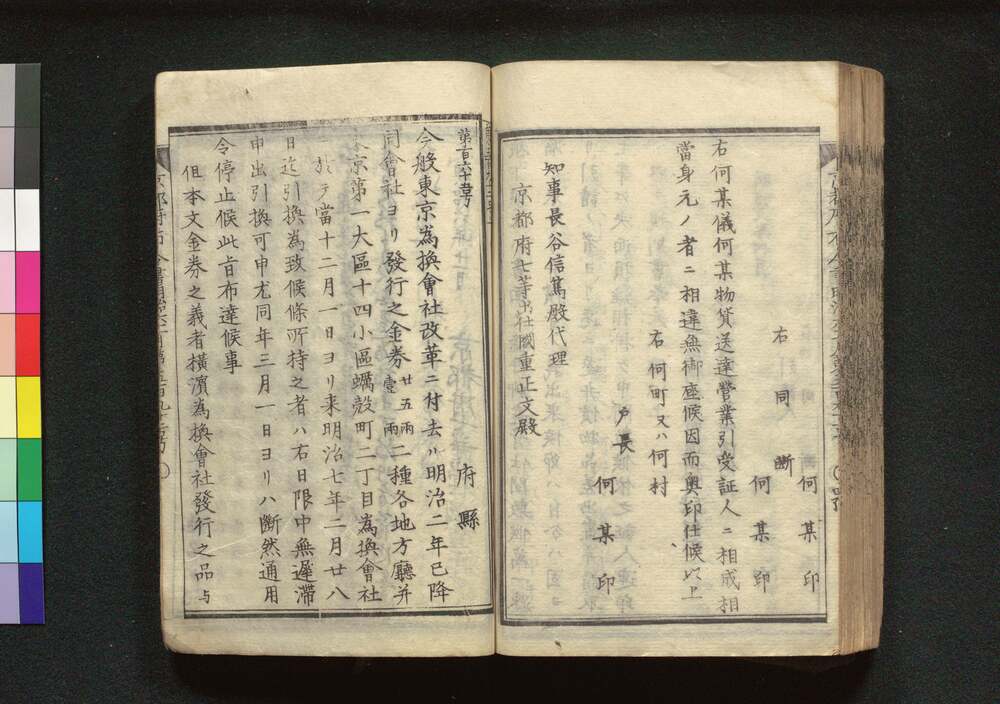 何某印
右同断
何某印
右何某儀何某物貨送達營業引受証人ニ相成相
當身元ノ者ニ相違無御座候因而奥印仕候以上
右何町又ハ何村
戸長
何某印
知事長谷信篤殿代理
京都府七等出仕國重正文殿
府縣
今般東京為換會社改革ニ付去ル明治二年已降
同會社ヨリ發行之金券廿五兩壹兩二種各地方廳并
東京第一大區十四小區蠣殻町二丁目為換會社
ニ於テ當十二月一日ヨリ来明治七年二月廿八
日迄引換為致候條所持之者ハ右日限中無遅滞
申出引換可申尤同年三月一日ヨリハ断然通用
令停止候此旨布達候事
但本文金券之義者横濱為換會社發行之品与